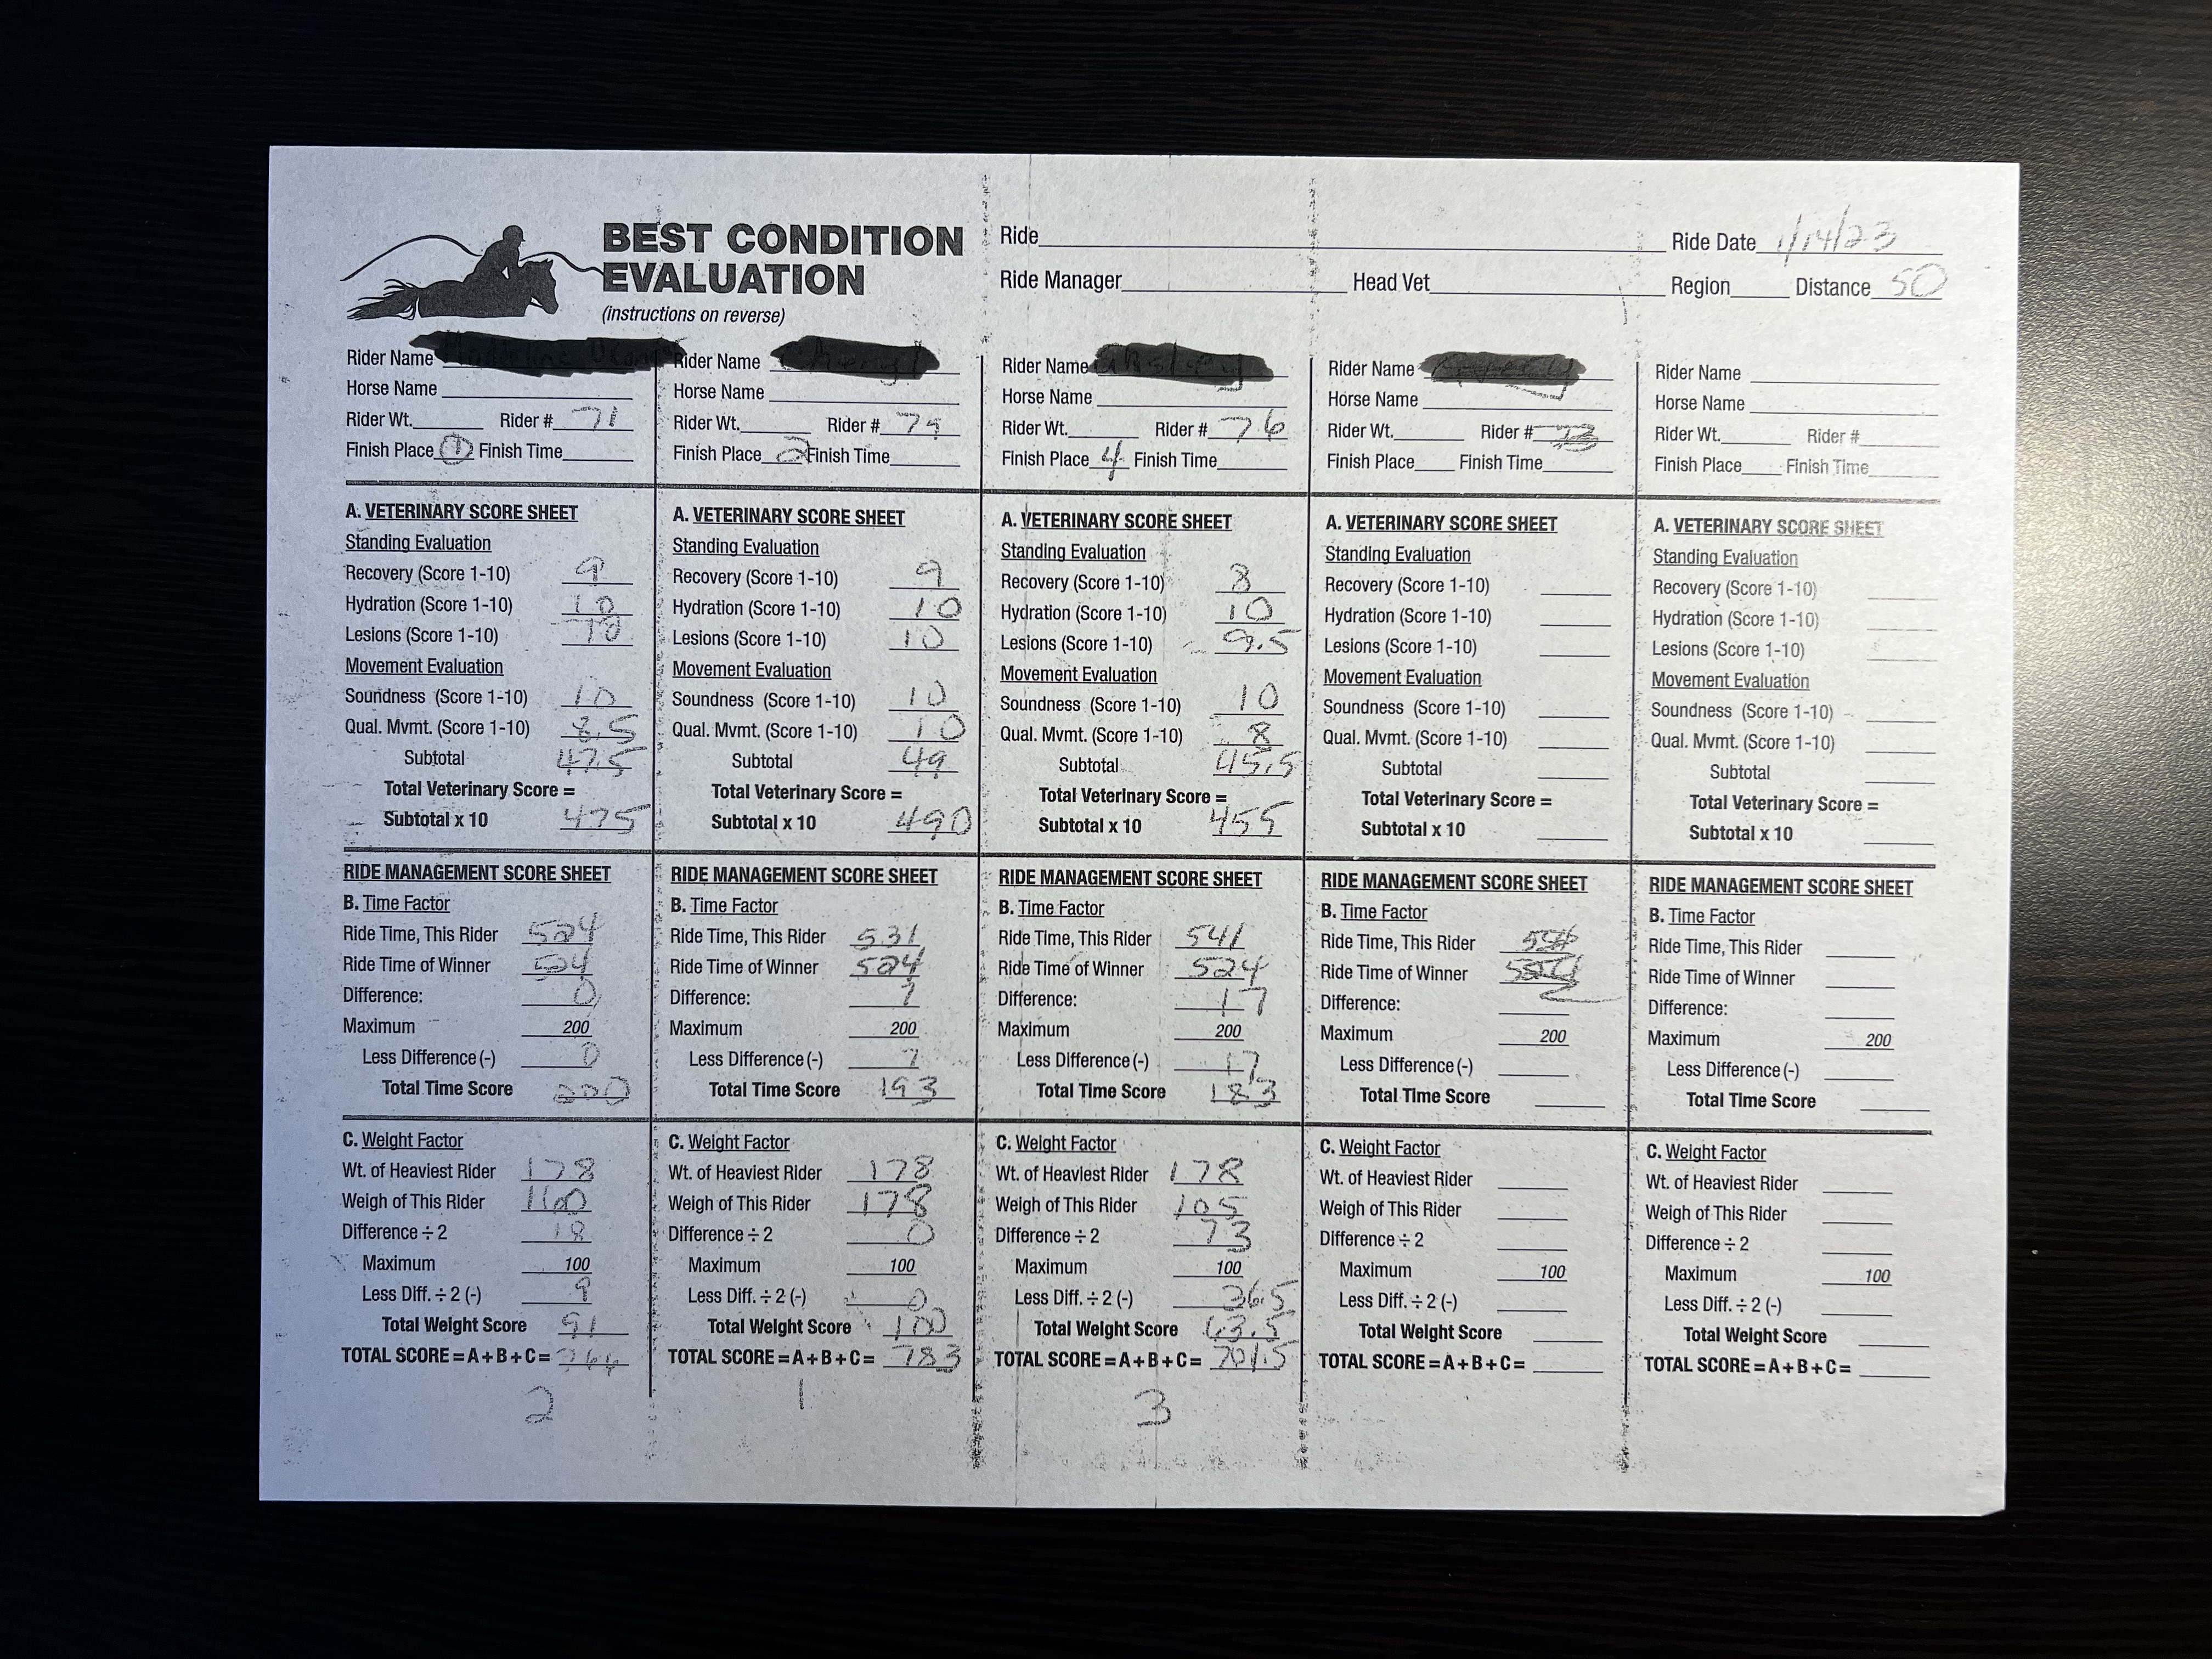 BEST CONDITION
EVALUATION
(instructions on reverse)
Ride
Ride Date 1/14/23
Ride Manager Head Vet Region Distance 50
Rider Name
Horse Name
Rider Wt. Rider # 71
Finish Place 1 Finish Time
A. VETERINARY SCORE SHEET
Standing Evaluation
Recovery (Score 1-10) 9
Hydration (Score 1-10) 10
Lesions (Score 1-10) 10
Movement Evaluation
Soundness (Score 1-10) 10
Qual. Mvmt. (Score 1-10) 8.5
Subtotal 47.5
Total Veterinary Score =
Subtotal x 10 475
RIDE MANAGEMENT SCORE SHEET
B. Time Factor
Ride Time, This Rider 524
Ride Time of Winner 524
Difference: 0
Maximum 200
Less Difference (-) 0
Total Time Score 200
C. Weight Factor
Wt. of Heaviest Rider 178
Weigh of This Rider 160
Difference ÷ 2 18
Maximum 100
Less Diff. ÷ 2 (-) 9
Total Weight Score 91
TOTAL SCORE = A + B + C = 766
2
Rider Name
Horse Name
Rider Wt. Rider #
Finish Place 2 Finish Time
A. VETERINARY SCORE SHEET
Standing Evaluation
Recovery (Score 1-10) 9
Hydration (Score 1-10) 10
Lesions (Score 1-10) 10
Movement Evaluation
Soundness (Score 1-10) 10
Qual. Mvmt. (Score 1-10) 10
Subtotal 49
Total Veterinary Score =
Subtotal x 10 490
RIDE MANAGEMENT SCORE SHEET
B. Time Factor
Ride Time, This Rider 531
Ride Time of Winner 524
Difference: 7
Maximum 200
Less Difference (-) 7
Total Time Score 193
C. Weight Factor
Wt. of Heaviest Rider 178
Weigh of This Rider 178
Difference ÷ 2 0
Maximum 100
Less Diff. ÷ 2 (-) 0
Total Weight Score 100
TOTAL SCORE = A + B + C = 783
1
Rider Name
Horse Name
Rider Wt. Rider # 76
Finish Place 4 Finish Time
A. VETERINARY SCORE SHEET
Standing Evaluation
Recovery (Score 1-10) 8
Hydration (Score 1-10) 10
Lesions (Score 1-10) 9.5
Movement Evaluation
Soundness (Score 1-10) 10
Qual. Mvmt. (Score 1-10) 8
Subtotal 45.5
Total Veterinary Score =
Subtotal x 10 455
RIDE MANAGEMENT SCORE SHEET
B. Time Factor
Ride Time, This Rider 541
Ride Time of Winner 524
Difference: 17
Maximum 200
Less Difference (-) 17
Total Time Score 183
C. Weight Factor
Wt. of Heaviest Rider 178
Weigh of This Rider 105
Difference ÷ 2 73
Maximum 100
Less Diff. ÷ 2 (-) 36.5
Total Weight Score 63.5
TOTAL SCORE = A + B + C = 701.5
3
Rider Name
Horse Name
Rider Wt. Rider #
Finish Place Finish Time
A. VETERINARY SCORE SHEET
Standing Evaluation
Recovery (Score 1-10)
Hydration (Score 1-10)
Lesions (Score 1-10)
Movement Evaluation
Soundness (Score 1-10)
Qual. Mvmt. (Score 1-10)
Subtotal
Total Veterinary Score =
Subtotal x 10
RIDE MANAGEMENT SCORE SHEET
B. Time Factor
Ride Time, This Rider
Ride Time of Winner
Difference:
Maximum 200
Less Difference (-)
Total Time Score
C. Weight Factor
Wt. of Heaviest Rider
Weigh of This Rider
Difference ÷ 2
Maximum 100
Less Diff. ÷ 2 (-)
Total Weight Score
TOTAL SCORE = A + B + C =
Rider Name
Horse Name
Rider Wt. Rider #
Finish Place Finish Time
A. VETERINARY SCORE SHEET
Standing Evaluation
Recovery (Score 1-10)
Hydration (Score 1-10)
Lesions (Score 1-10)
Movement Evaluation
Soundness (Score 1-10)
Qual. Mvmt. (Score 1-10)
Subtotal
Total Veterinary Score =
Subtotal x 10
RIDE MANAGEMENT SCORE SHEET
B. Time Factor
Ride Time, This Rider
Ride Time of Winner
Difference:
Maximum 200
Less Difference (-)
Total Time Score
C. Weight Factor
Wt. of Heaviest Rider
Weigh of This Rider
Difference ÷ 2
Maximum 100
Less Diff. ÷ 2 (-)
Total Weight Score
TOTAL SCORE = A + B + C =